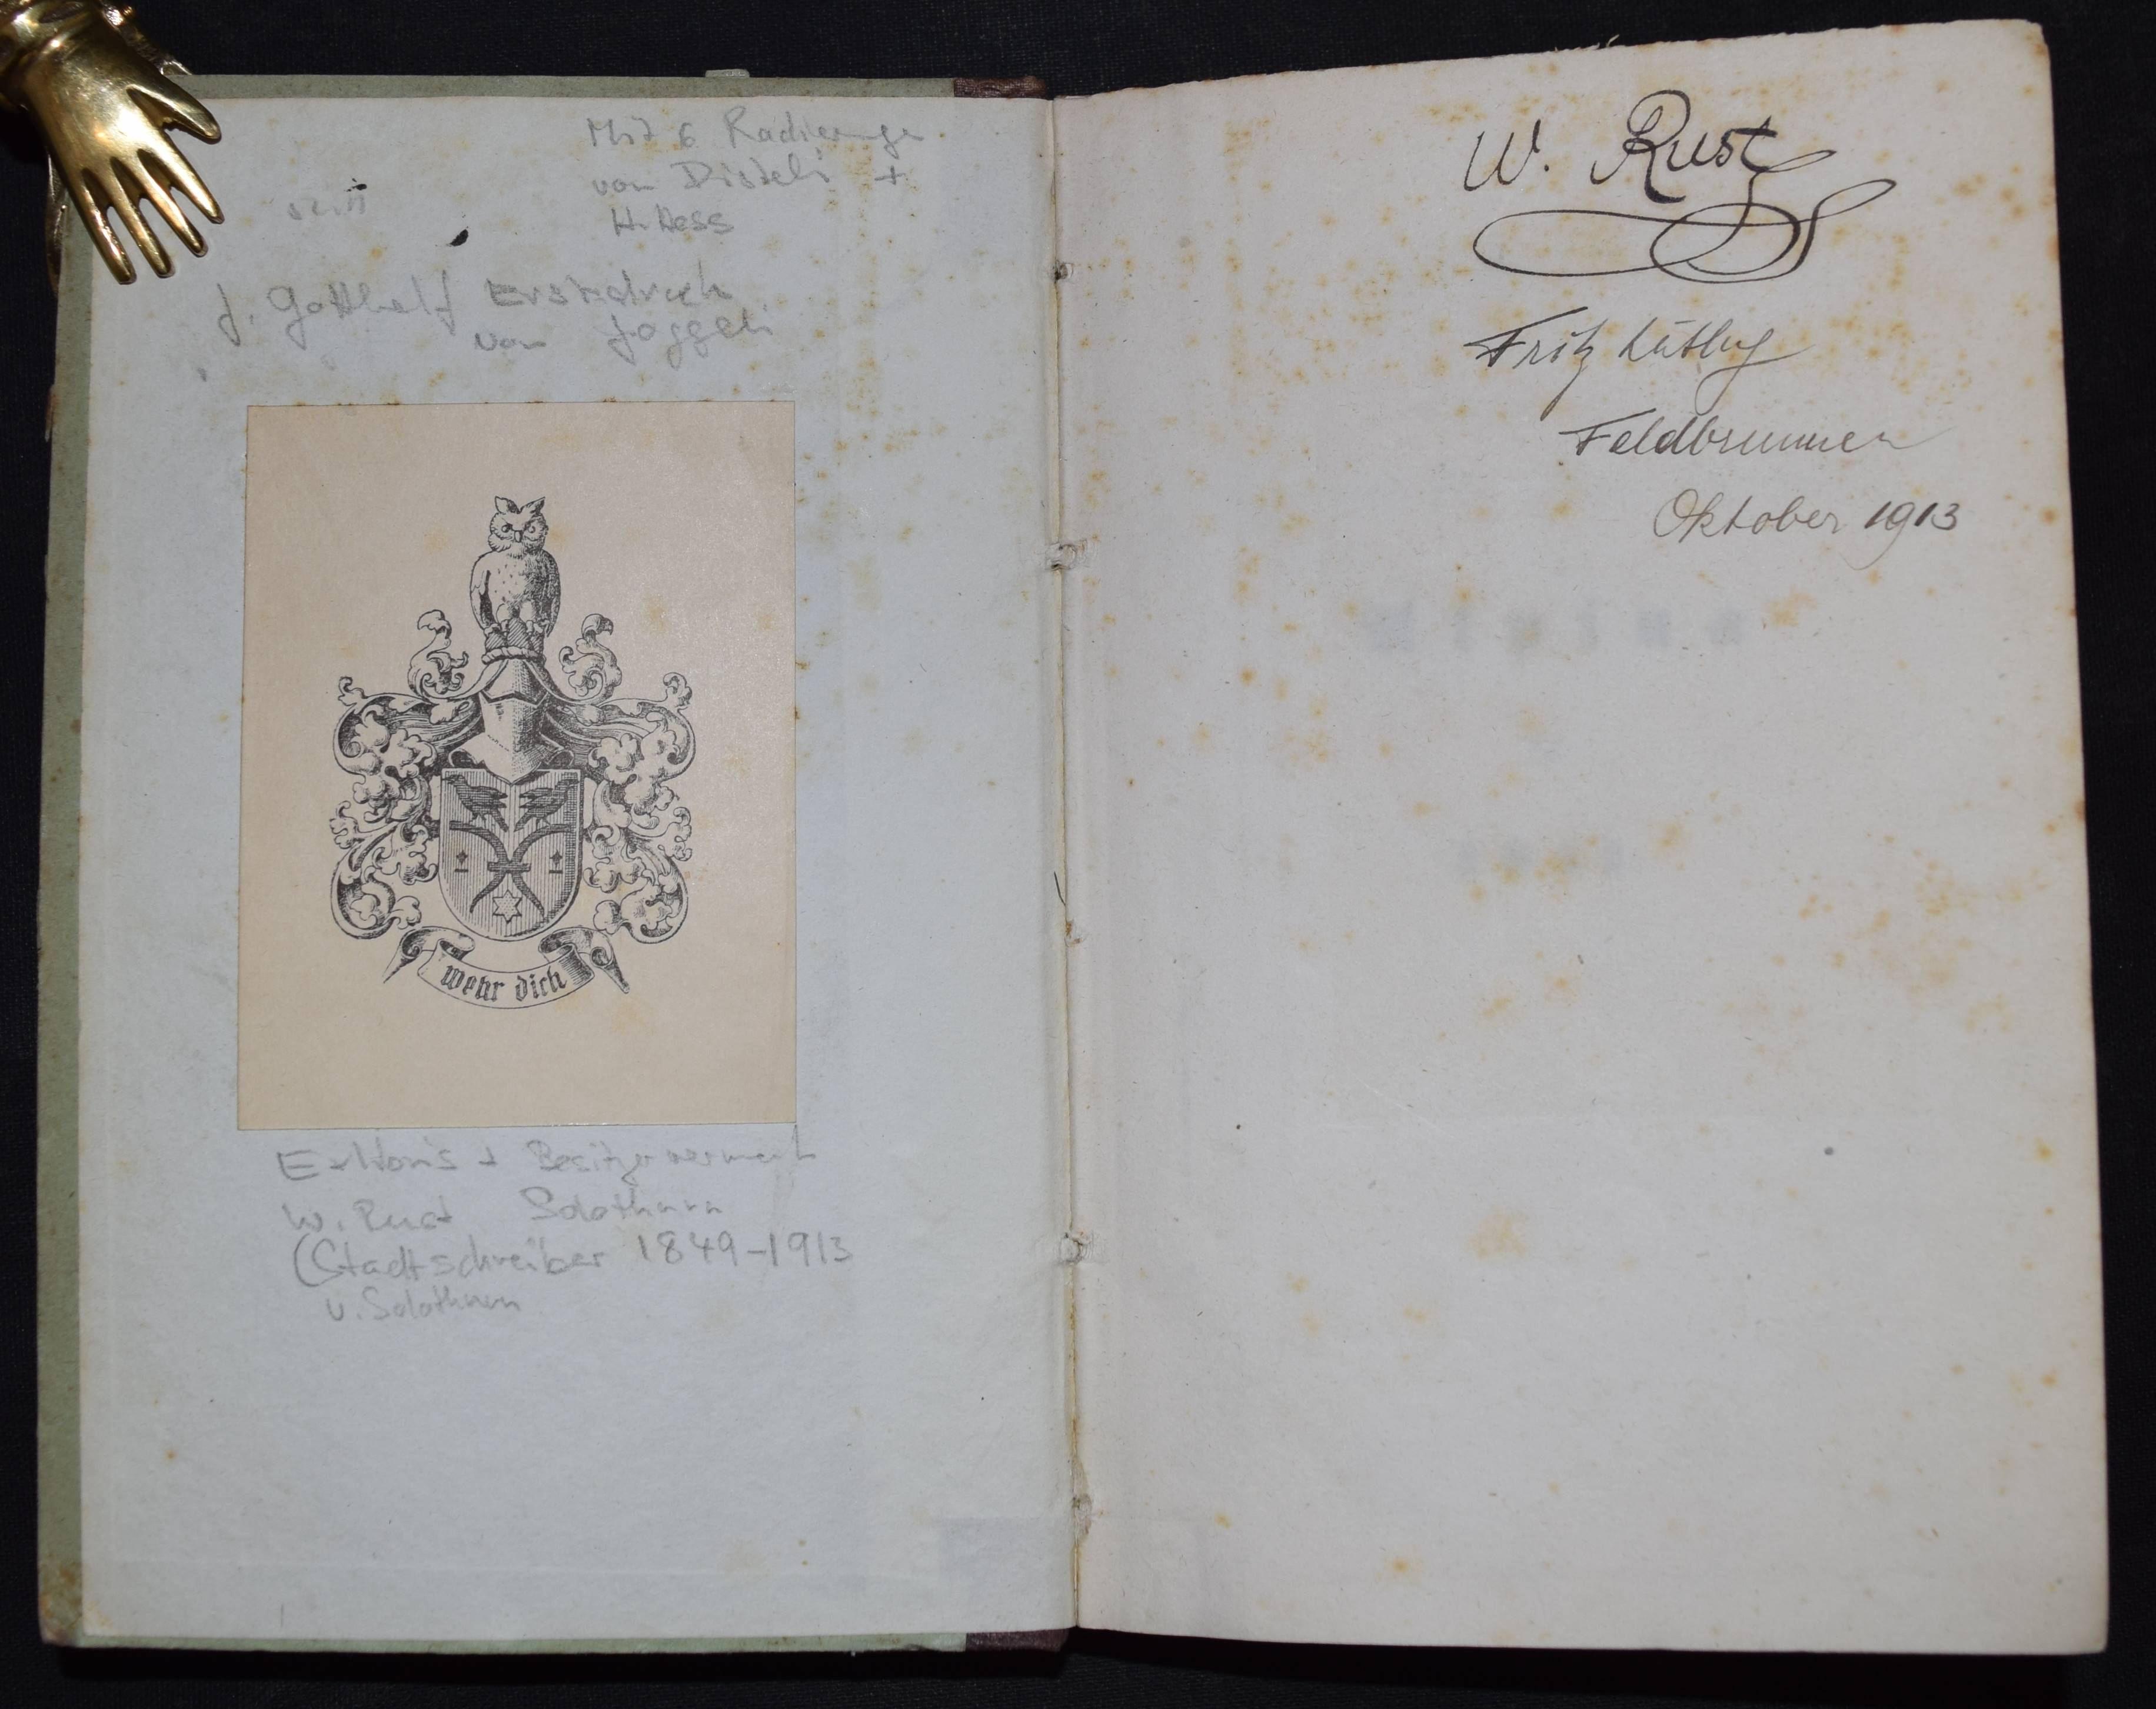 Mit 6 Radierungen
von Disteli +
H. Hess
J. Gotthelf Erstdruck
von Joggeli
wehr dich
Exlibris + Besitzervermerk
W. Rust Solothurn
(Stadtschreiber 1849-1913
v. Solothurn
W. Rust
Fritz Lüthy
Feldbrunnen
Oktober 1913